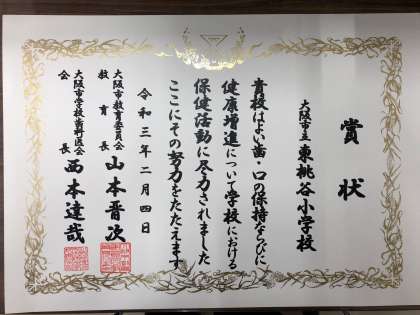 賞状
大阪市立東桃谷小学校
貴校はよい歯・口の保持ならびに
健康増進について学校における
保健活動に尽力されました
ここにその努力をたたえます
令和三年二月四日
大阪市教育委員会
教育長 山本晋次
大阪市学校歯科医会
会長 西本達哉